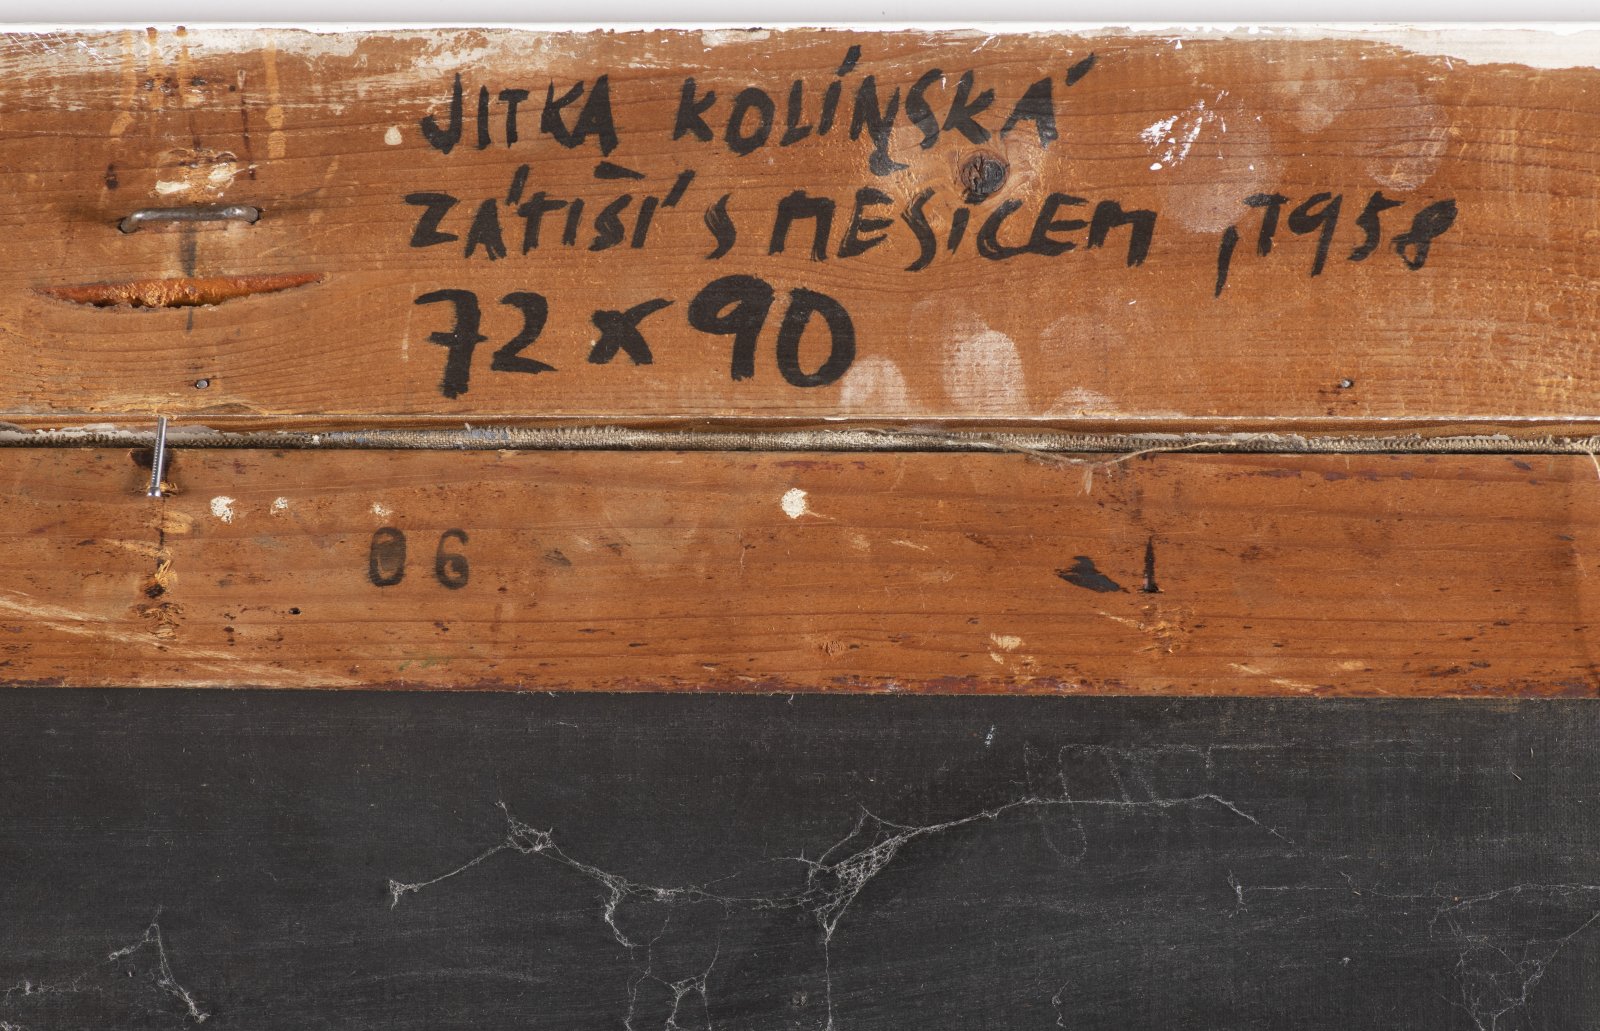 JITKA KOLÍNSKÁ
ZÁTIŠÍ S MESÍCEM, 1958
72 x 90
06